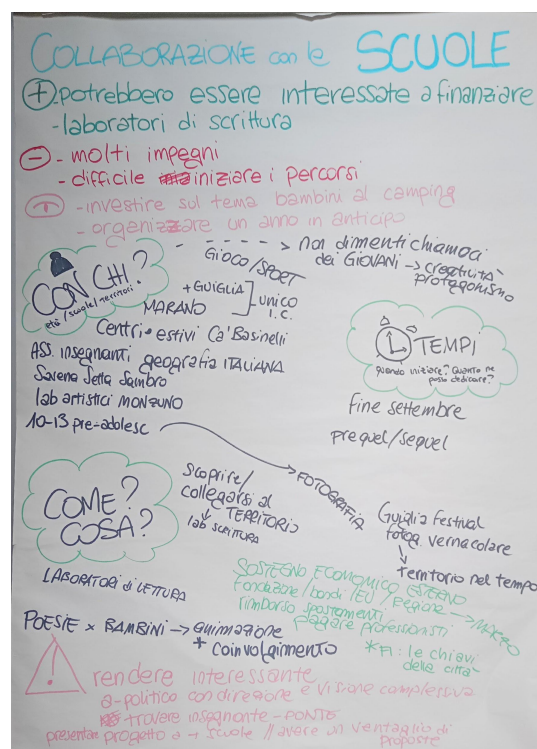 COLLABORAZIONE con le SCUOLE
+ . potrebbero essere interessate a finanziare
- laboratori di scrittura
- - molti impegni
- difficile iniziare i percorsi
- investire sul tema bambini al camping
- organizzare un anno in anticipo
CON CHI?
età/scuole/territori
- - - - > non dimentichiamoci
dei GIOVANI → creatività
protagonismo
GIOCO/SPORT
+ GUIGLIA
MARANO
UNICO
I.C.
Centri estivi Ca' Basinelli
ASS. insegnanti geografia ITALIANA
Savena Setta Sambro
lab artistici MONZUNO
10-13 pre-adolesc → FOTOGRAFIA
TEMPI
quando iniziare? Quanto ne
posso dedicare?
fine settembre
prequel/sequel
COME?
COSA?
scoprire/
collegarsi al
TERRITORIO
lab SCRITTURA
Guiglia Festival
fotog. vernacolare
territorio nel tempo
LABORATORI di LETTURA
SOSTEGNO ECONOMICO ESTERNO
Fondazione/bandi/EU/Regione →
rimborso spostamenti
pagare professionisti
* : le chiavi
della città
POESIE x BAMBINI → animazione
+ coinvolgimento
! rendere interessante
a-politico con direzione e visione complessiva
trovare insegnante - PONTE
presentare progetto a → scuole // avere un ventaglio di
proposte